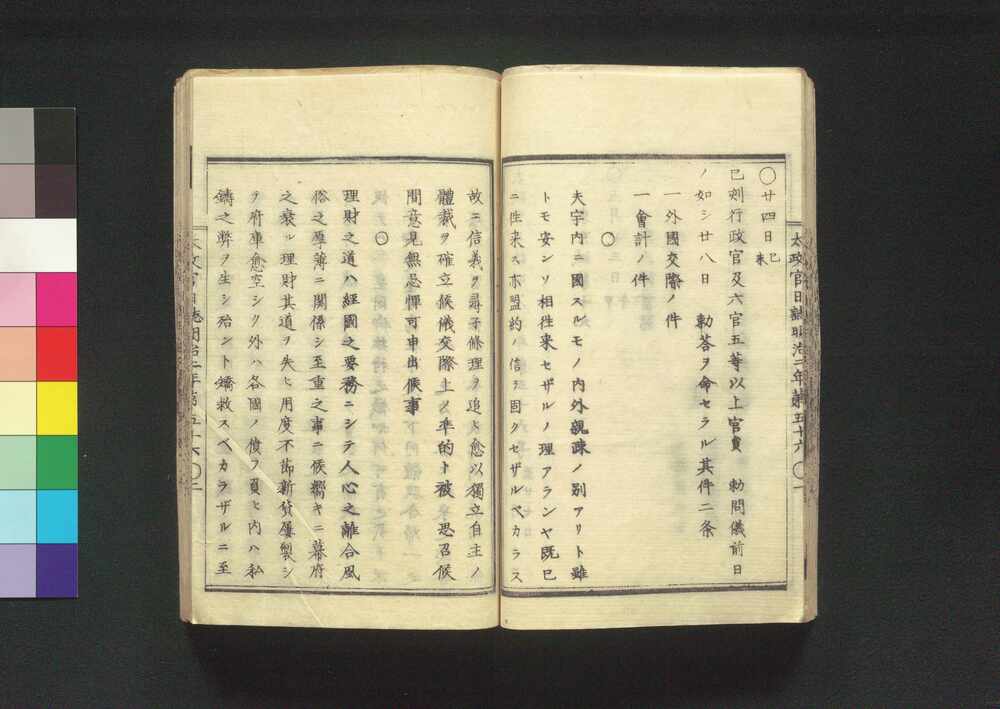 太政官日誌明治二年第五十六
〇廿四日己未
巳刻行政官及六官五等以上官員　勅問儀前日
ノ如シ廿八日　勅答ヲ命セラル其件二条
一外國交際ノ件
一會計ノ件
〇
夫宇内ニ國スルモノ内外親疎ノ別アリト雖
トモ安ンソ相往来セザルノ理アランヤ既已
ニ往来ス亦盟約ノ信ヲ固クセザルベカラス
故ニ信義ヲ尋子條理ヲ追ヒ愈以獨立自主ノ
體裁ヲ確立候儀交際上ノ準的ト被　思召候
間意見無忌憚可申出候事
〇
理財之道ハ經國之要務ニシテ人心之離合風
俗之厚薄ニ関係シ至重之事ニ候嚮キニ幕府
之衰ル理財其道ヲ失ヒ用度不節新貨屢製シ
ヲ府庫愈空シク外ハ各國ノ債ヲ負ヒ内ハ私
鑄之弊ヲ生シ殆ント矯救スベカラザルニ至